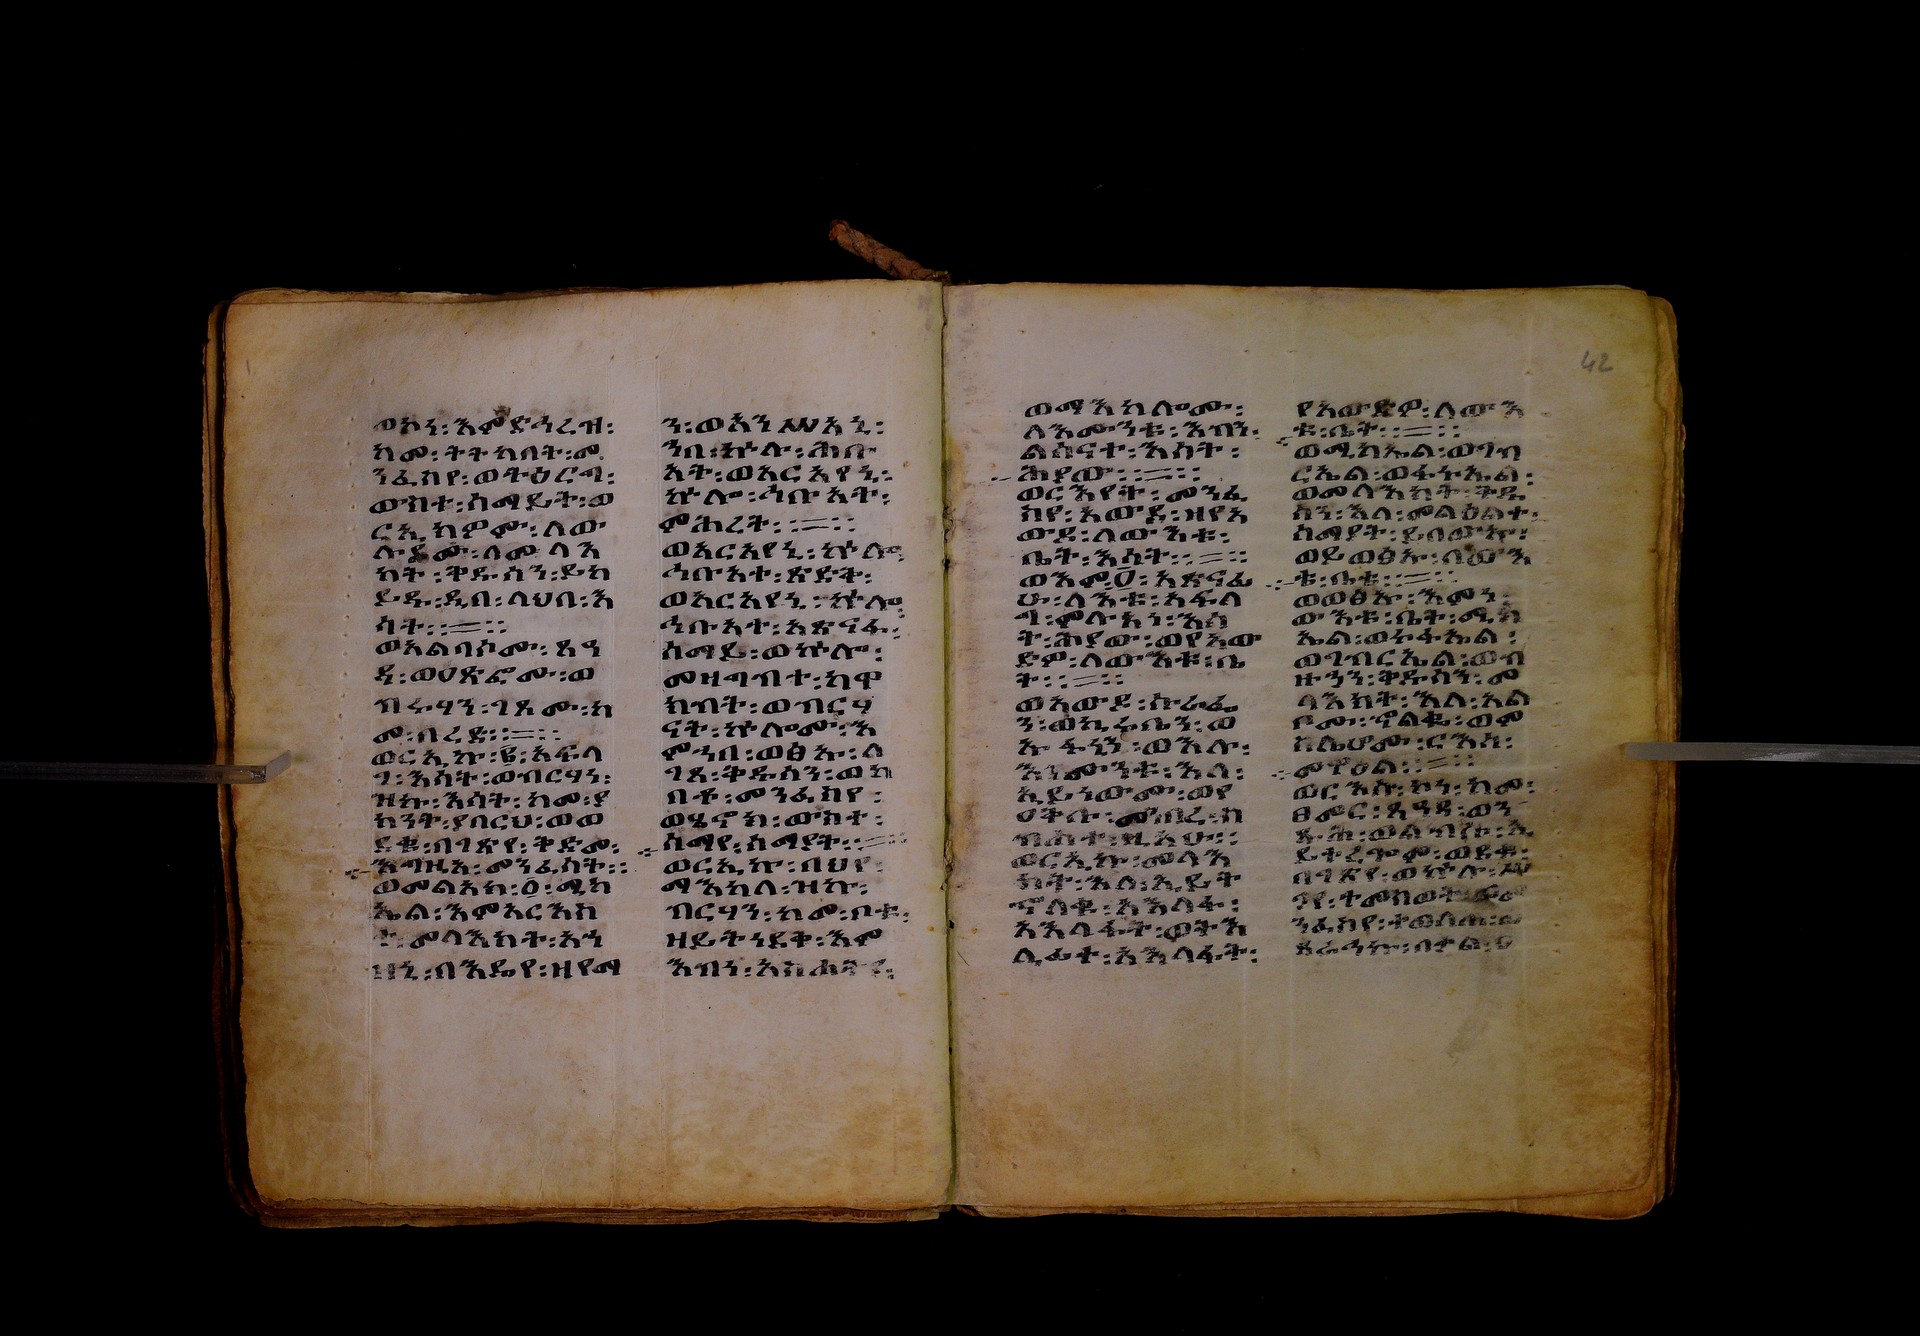 ወኮነ፡እምድኅረዝ፡
ከመ፡ትትከበት፡መ
ንፈስየ፡ወትዕርግ፡
ውስተ፡ሰማይት፡ወ
ርኢክዎሙ፡ለው
ሉደሙ፡ለመላእ
ክት፡ቅዱሳን፡ይከ
ይዱ፡ዲበ፡ላህበ፡እ
ሳት፡፡=፡፡
ወአልባሲሙ፡ጸዓ
ዳ፡ወዐጽፎሙ፡ወ
ብሩሃን፡ገጾሙ፡ከ
መ፡በረድ፡፡=፡፡
ወርኢኩ፡፪፡አፍላ
ገ፡እሳት፡ወብርሃነ፡
ዝኩ፡እሳት፡ከመ፡ያ
ክንት፡ያበርህ፡ወወ
ደቁ፡በገጽየ፡ቅድመ፡
እግዚአ፡መንፈሳት፡፡
ወመልአክ፡፩፡ሚካ
ኤል፡እምአርእስ
ተ፡መላእክት፡አኀ
ዘኒ፡በእዴየ፡ዘየማ
ን፡ወአንሥአኒ፡
ኀበ፡ኵሉ፡ሕቡ
አት፡ወአርአየኒ፡
ኵሎ፡ኅቡአት፡
ምሕረት፡፡=፡፡
ወአርአየኒ፡ኵሎ፡
ኅቡአተ፡ጽድቅ፡
ወአርአየኒ፡ኵሎ፡
ኅቡአተ፡አጽናፈ፡
ሰማይ፡ወኵሎ፡
መዛግብተ፡ከዋ
ክብት፡ወብርሃ
ናት፡ኵሎሙ፡እ
ምኀበ፡ወፅኡ፡ለ
ገጸ፡ቅዱሳን፡ወከ
በቶ፡መንፈስየ፡
ወሄኖክ፡ውስተ፡
ሰማየ፡ሰማያት፡፡=፡፡
ወርኢኩ፡በህየ፡
ማእከለ፡ዝኩ፡
ብርሃን፡ከመ፡ቦቱ፡
ዘይትነደቅ፡እም
እብነ፡አስሐትያ፡
ወማእከሎሙ፡
ለእሙንቱ፡እብን፡
ልሳናተ፡እሳት፡
ሕያው፡፡=፡፡
ወርእየት፡መንፈ
ስየ፡አውደ፡ዘየአ
ውዶ፡ለውእቱ፡
ቤት፡እሳት፡፡=፡፡
ወእም፬፡አጽናፊ
ሁ፡ለእቱ፡አፍላ
ግ፡ምሉአነ፡እሳ
ት፡ሕያው፡ወየአው
ድዎ፡ለውእቱ፡ቤ
ት፡፡=፡፡
ወአውደ፡ሱራፌ
ን፡ወኪሩቤን፡ወ
ኡፋኒን፡ወእሉ፡
እሙንቱ፡እለ፡
ኢይነውሙ፡ወየ
ዐቅቡ፡መንበረ፡ስ
ብሐተ፡ዚአሁ፡፡
ወርኢኩ፡መላእ
ክት፡እለ፡ኢይት
ኆለቁ፡አእላፈ፡
አእላፋት፡ወትእ
ልፊተ፡አእላፋት፡
የአውድዎ፡ለውእ
ቱ፡ቤት፡፡=፡፡
ወሚካኤል፡ወገብ
ርኤል፡ወፋኑኤል፡
ወመላእክት፡ቅዱ
ሳን፡እለ፡መልዕልተ፡
ሰማያት፡ይበውኡ፡
ወይወፅኡ፡በውእ
ቱ፡ቤቱ፡፡=፡፡
ወወፅኡ፡እምነ፡
ውእቱ፡ቤት፡ሚካ
ኤል፡ወፋኑኤል፡
ወገብርኤል፡ወብ
ዙኃን፡ቅዱሳን፡መ
ላእክት፡እለ፡አል
ቦሙ፡ኆልቈ፡ወም
ስሌሆሙ፡ርእሰ፡
መዋዕል፡፡=፡፡
ወርእሱ፡ከነ፡ከመ፡
ፀምር፡ጸዓዳ፡ወን
ጹሕ፡ወልብሱ፡ኢ
ይተረጐም፡ወደቁ፡
በገጽየ፡ወኵሉ፡ሥ
ጋየ፡ተመስወ፡
ንፈስየ፡ተወለጠ፡
ጸራኅኩ፡በቃል፡ዐ